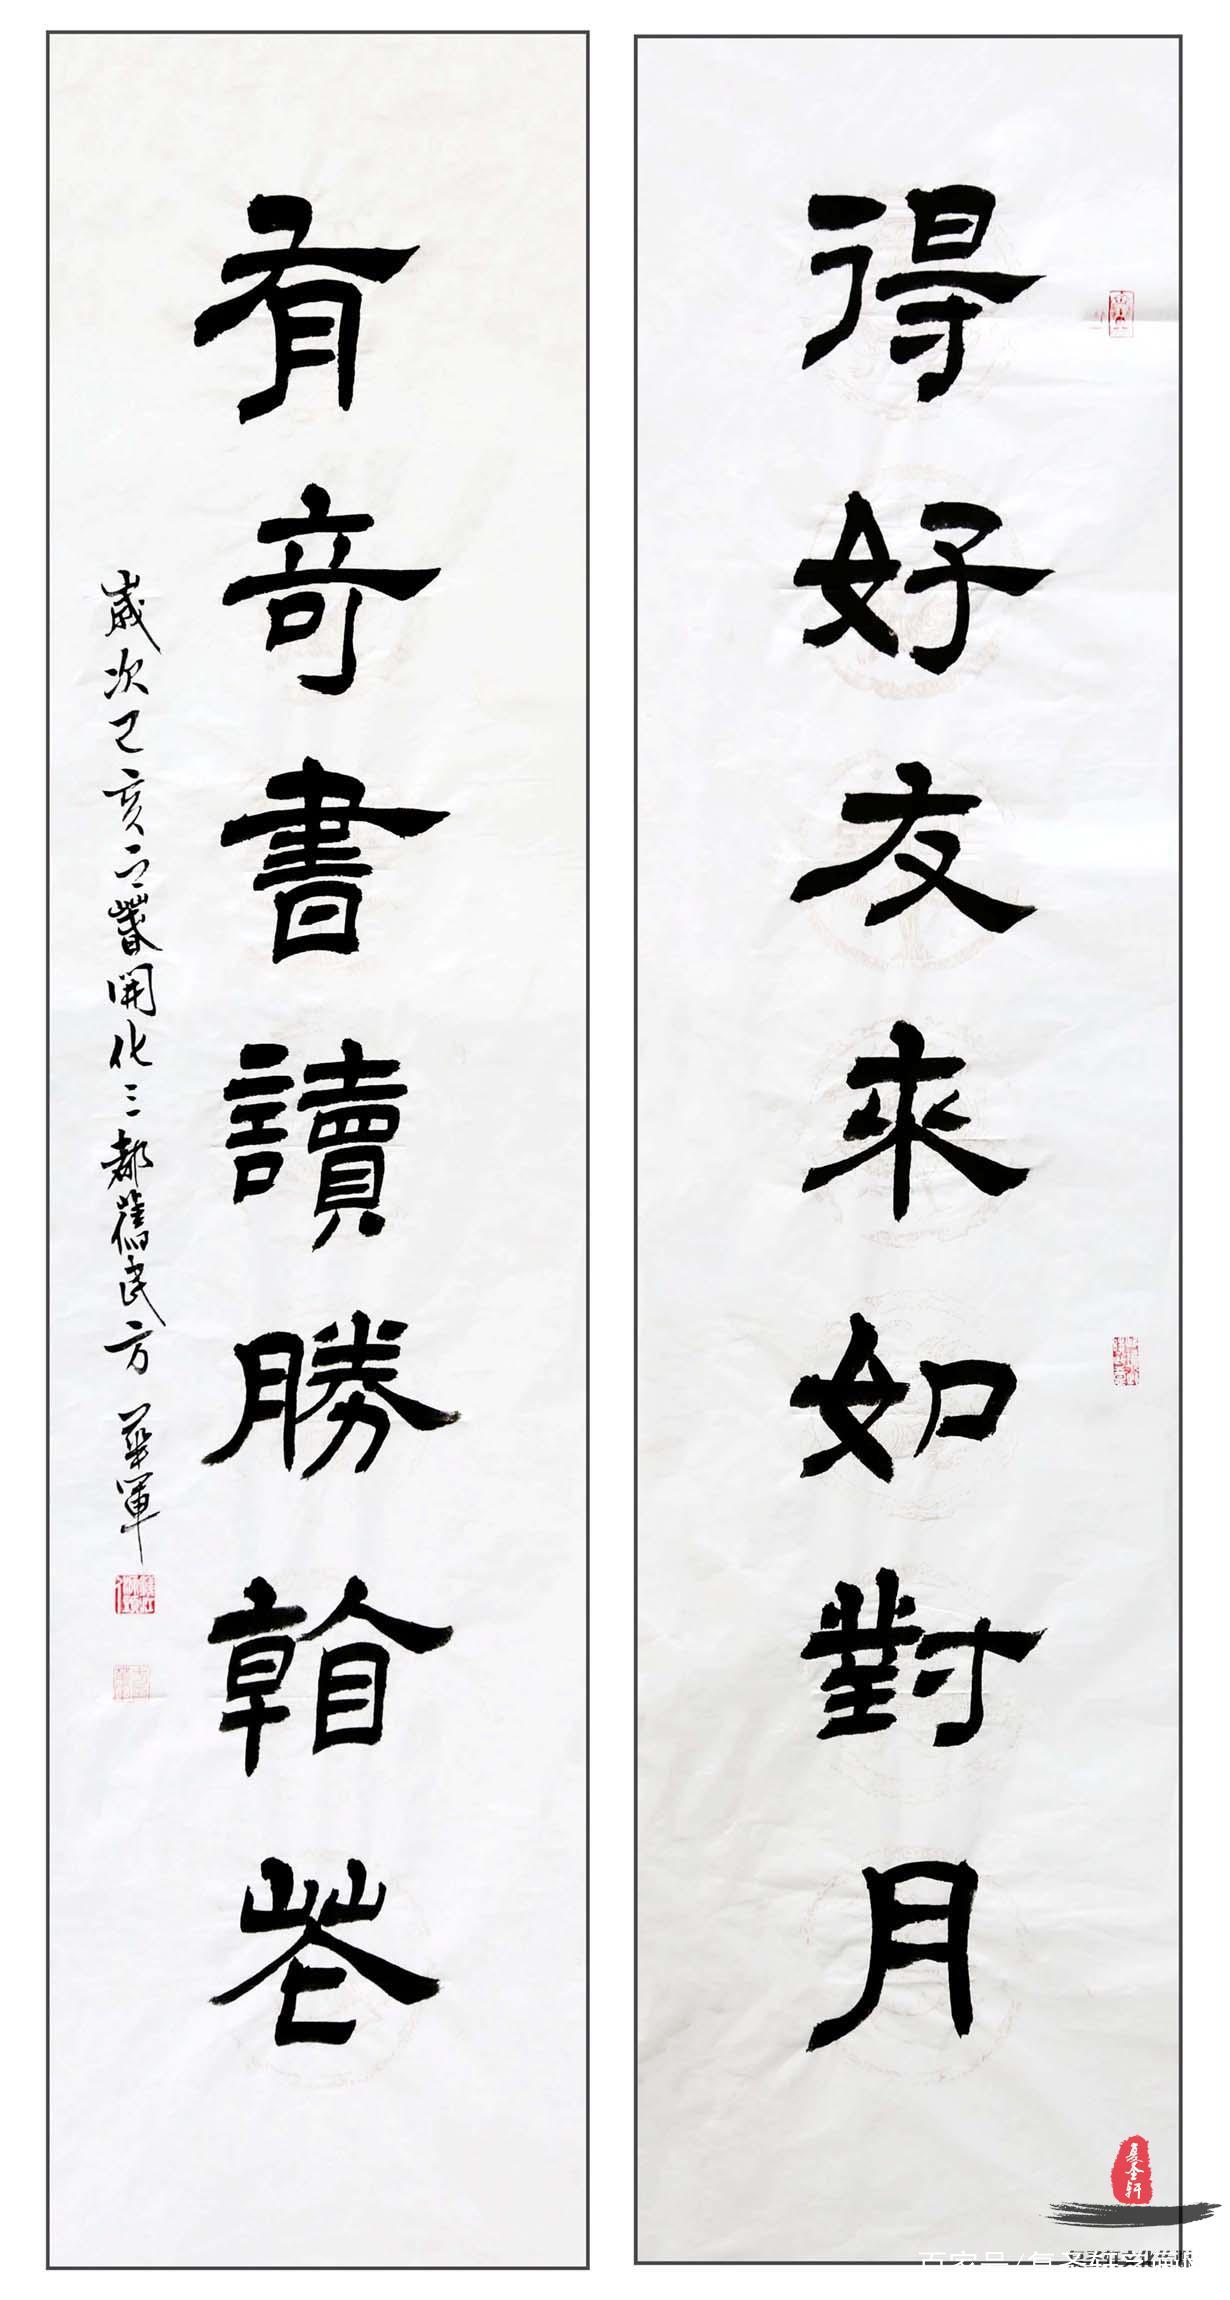 得好友來如對月
有奇書讀勝看花
歲次己亥之春開化三都舊民方華軍
百家号/